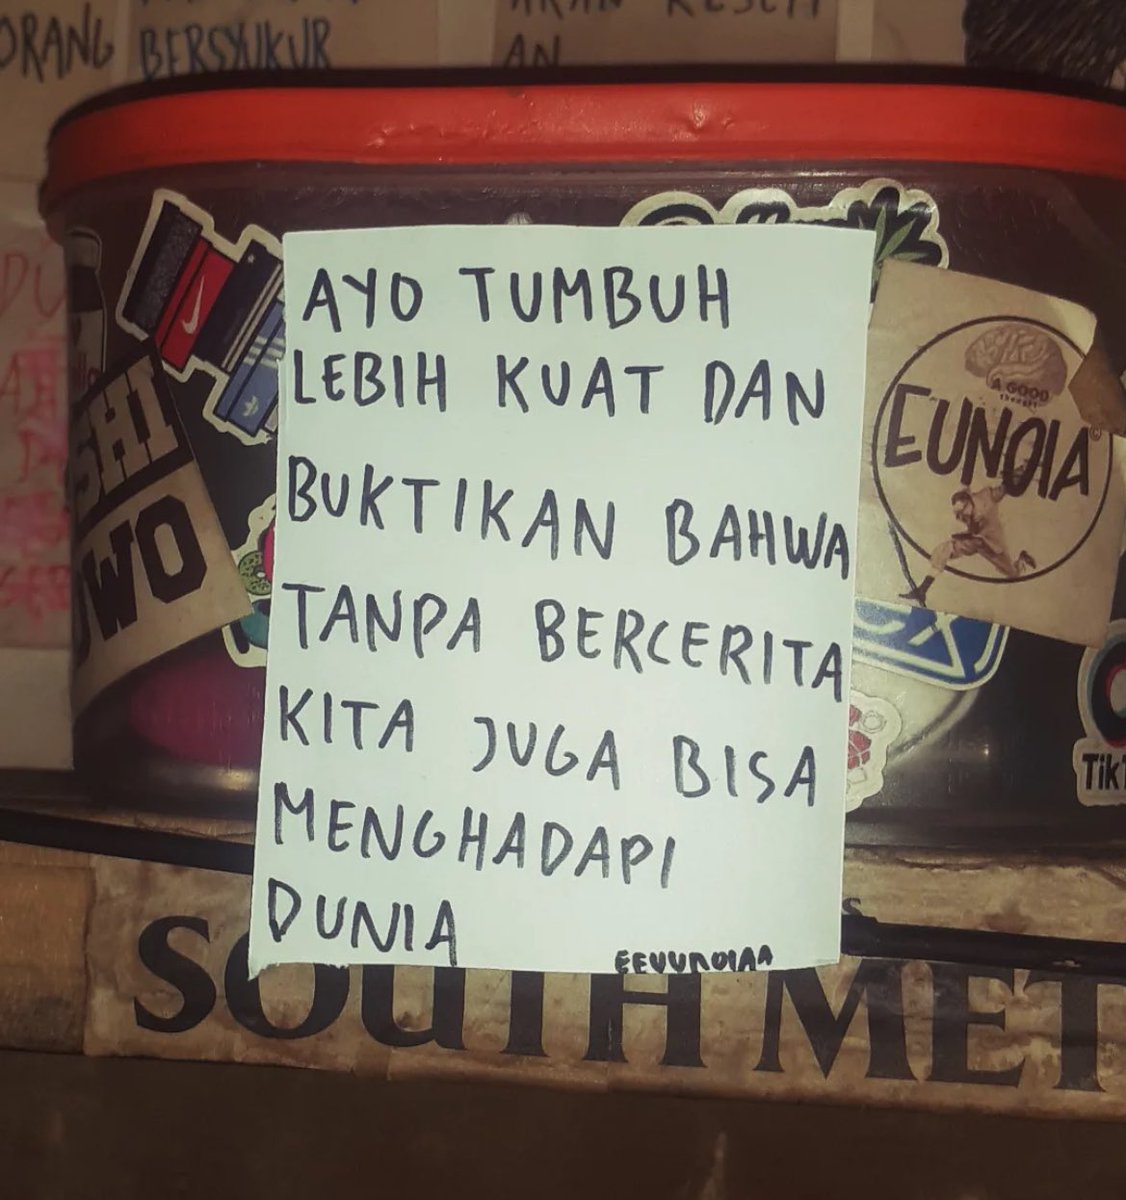 ORANG BERSYUKUR
AN
AYO TUMBUH
LEBIH KUAT DAN
BUKTIKAN BAHWA
TANPA BERCERITA
KITA JUGA BISA
MENGHADAPI
DUNIA
EEUUNOIAA
A GOOD
EUNOIA
SHI
WO
SOUTH MET